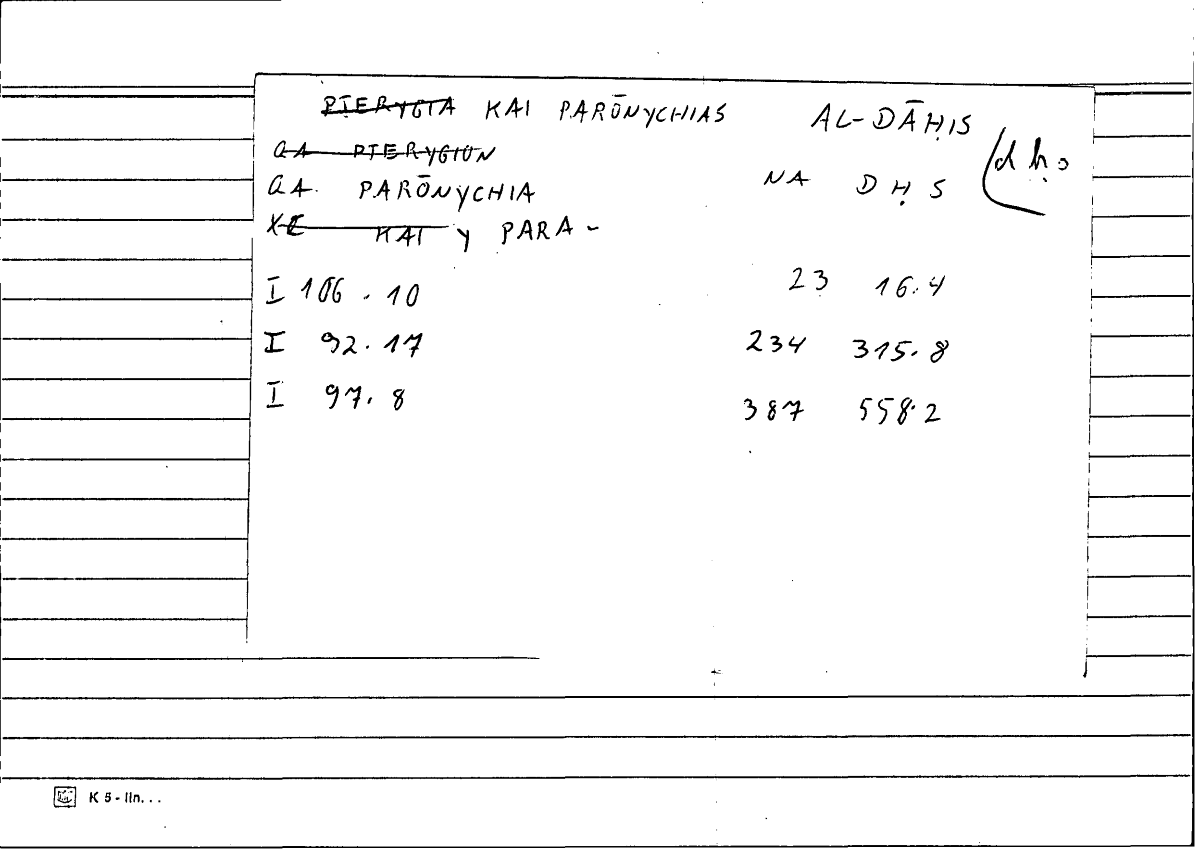 PTERYGIA KAI PARŌNYCHIAS AL-DĀḤIS
GA PTERYGION
GA. PARŌNYCHIA NA DḤS
XE KAI y PARA- 
I 106.10 23 16.4
I 92.17 234 315.8
I 97.8 387 558.2
K 5 - lin...